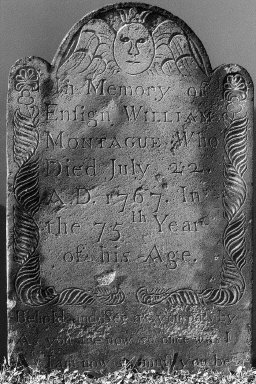 In Memory of
Ensign WILLIAM
MONTAGUE Who
Died July 22.
A.D. 1767. In
the 75th Year
of his Age.
Behold me as you by
As you are now so once was I
As I am now so must be